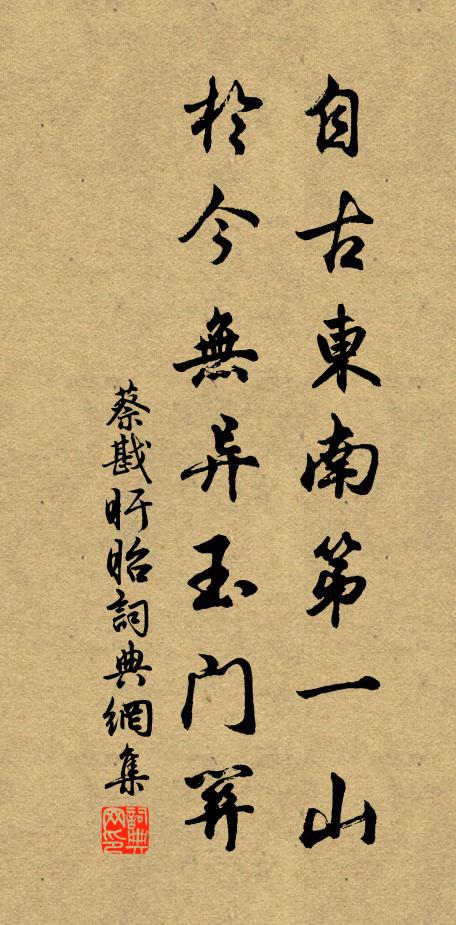 自古東南第一山
於今無异玉门関
蔡戡盱眙詞典網集
詞典网印